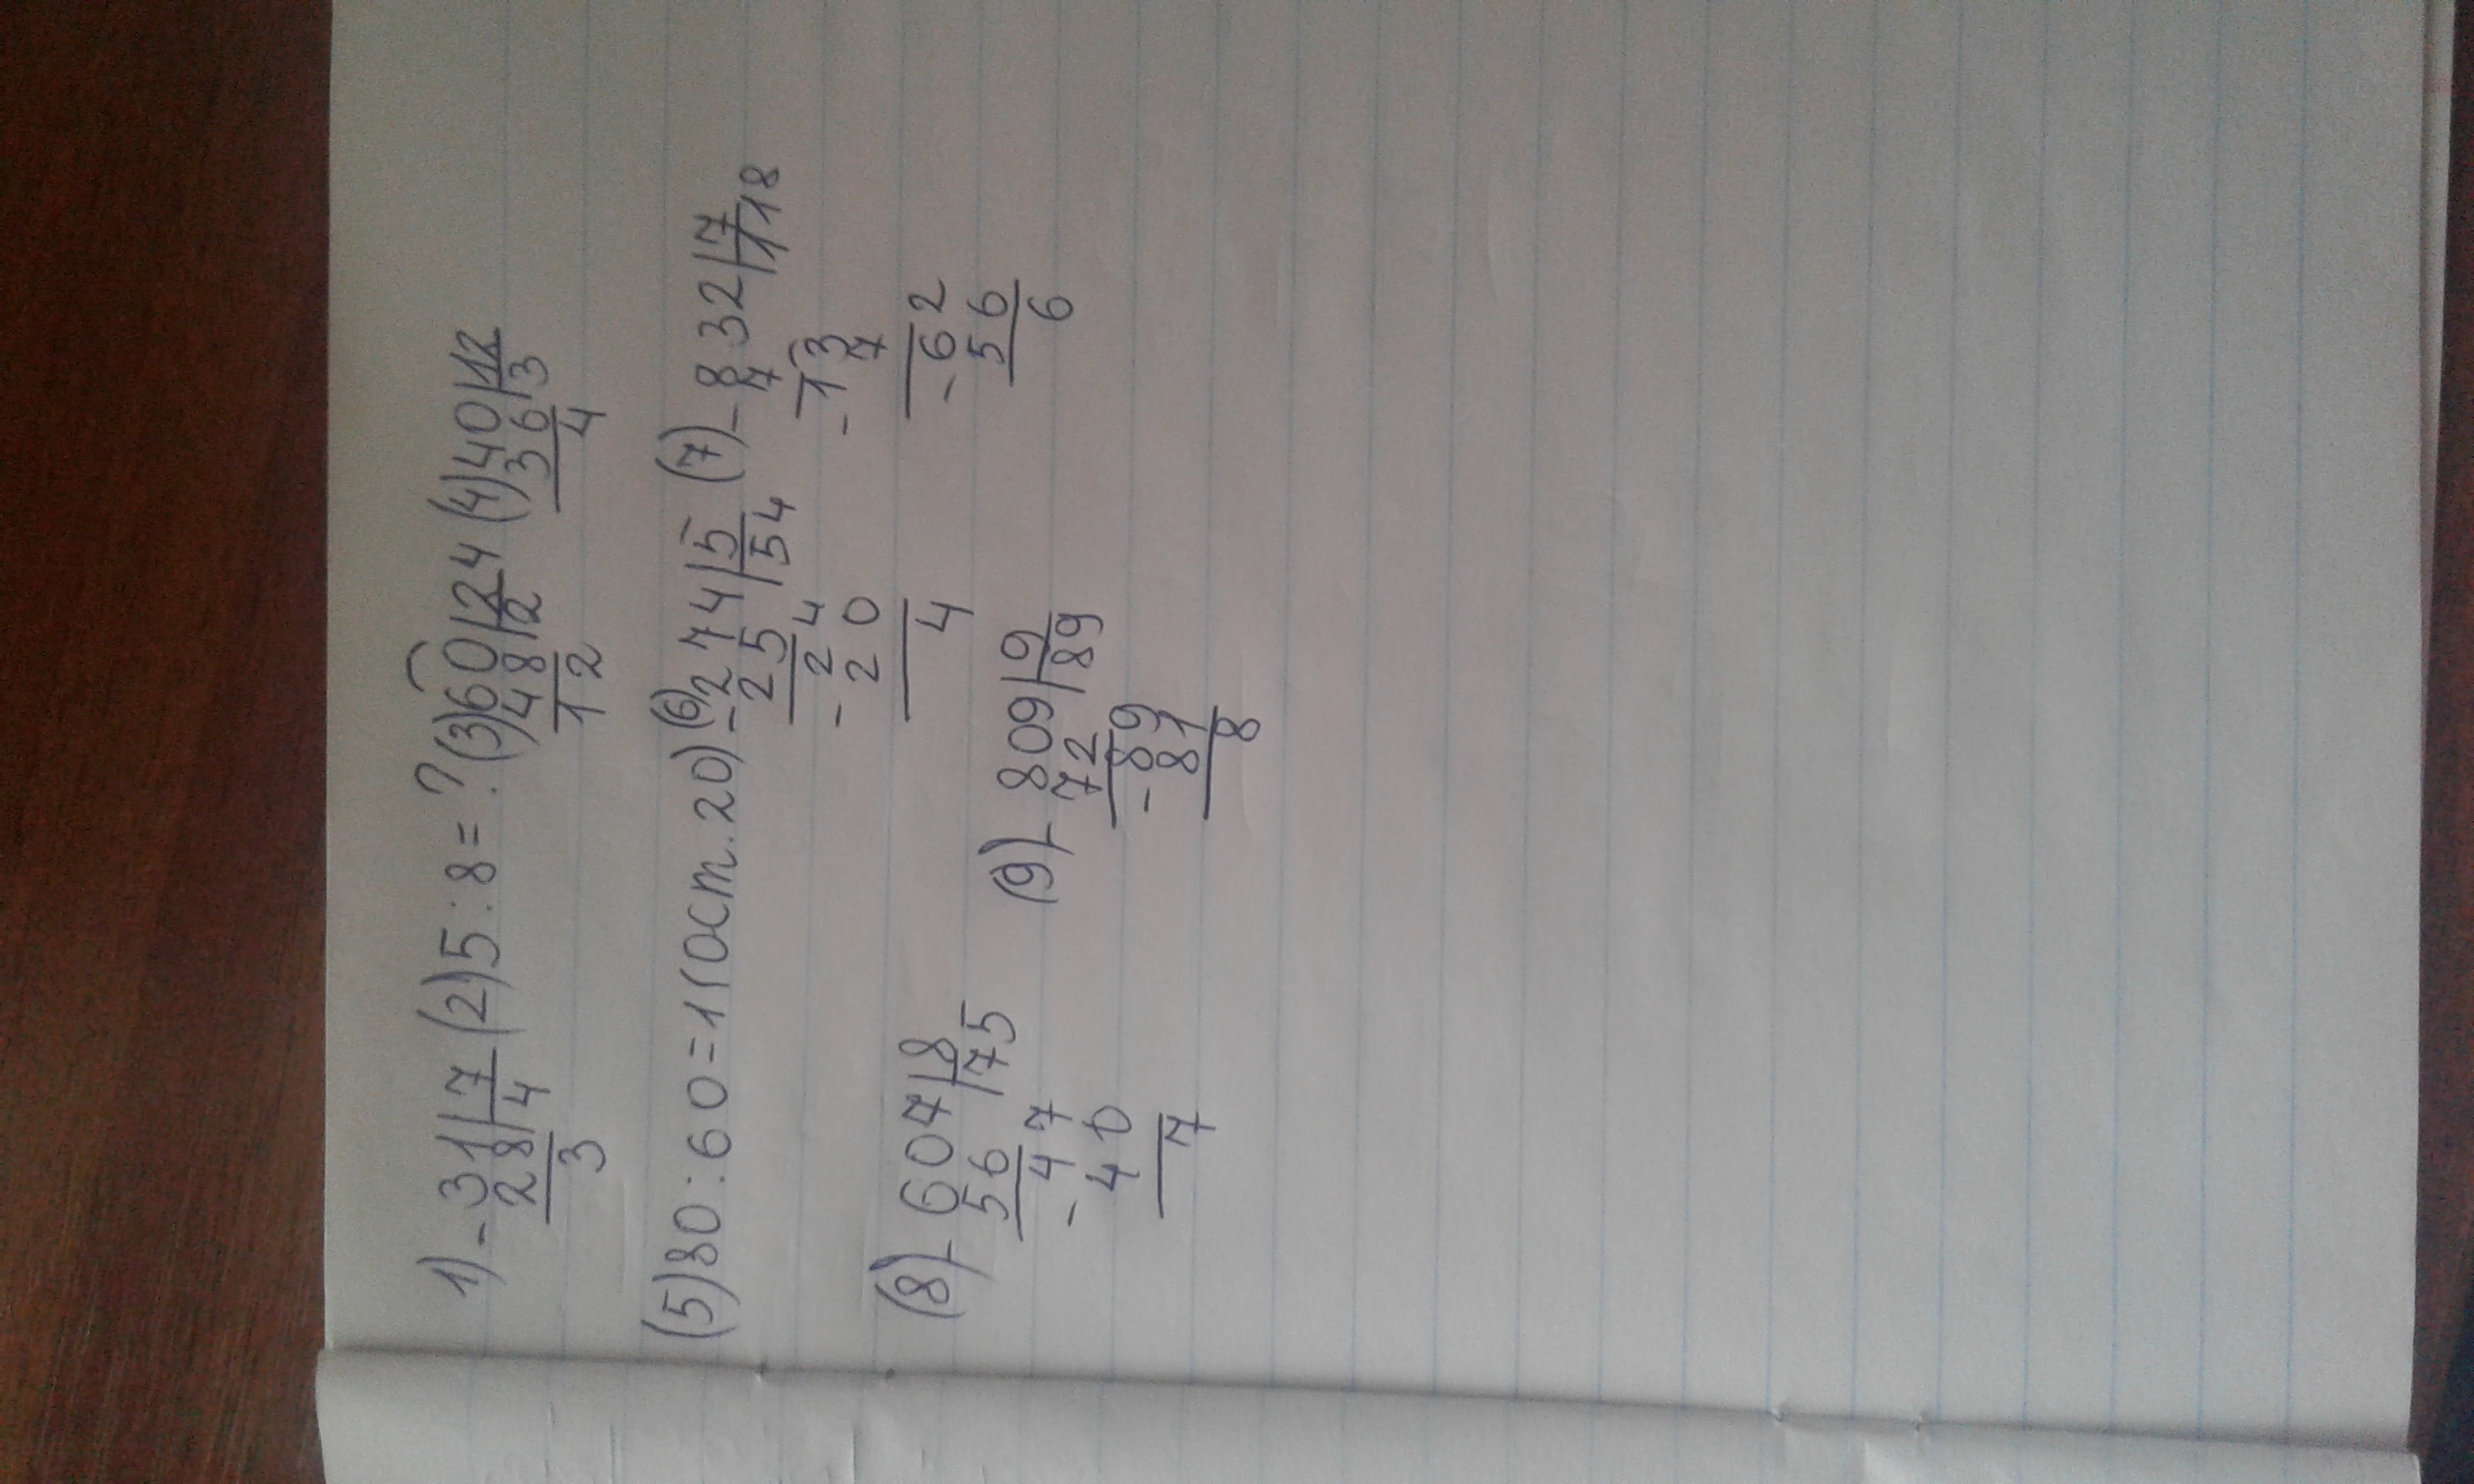 1) - 31|7 (2) 5 : 8 = ? (3) 60|24 (4) 40|12
28|4 48|2 36|3
3 12 4
(5) 80 : 60 = 1 (Ост. 20) (6) - 274|5 (7) - 832|7
25|54 7|118
- 24 - 13
20 7
4 - 62
56
6
(8) - 607|8
56|75
- 47
40
7
(9) - 809|9
72|89
- 89
81
8